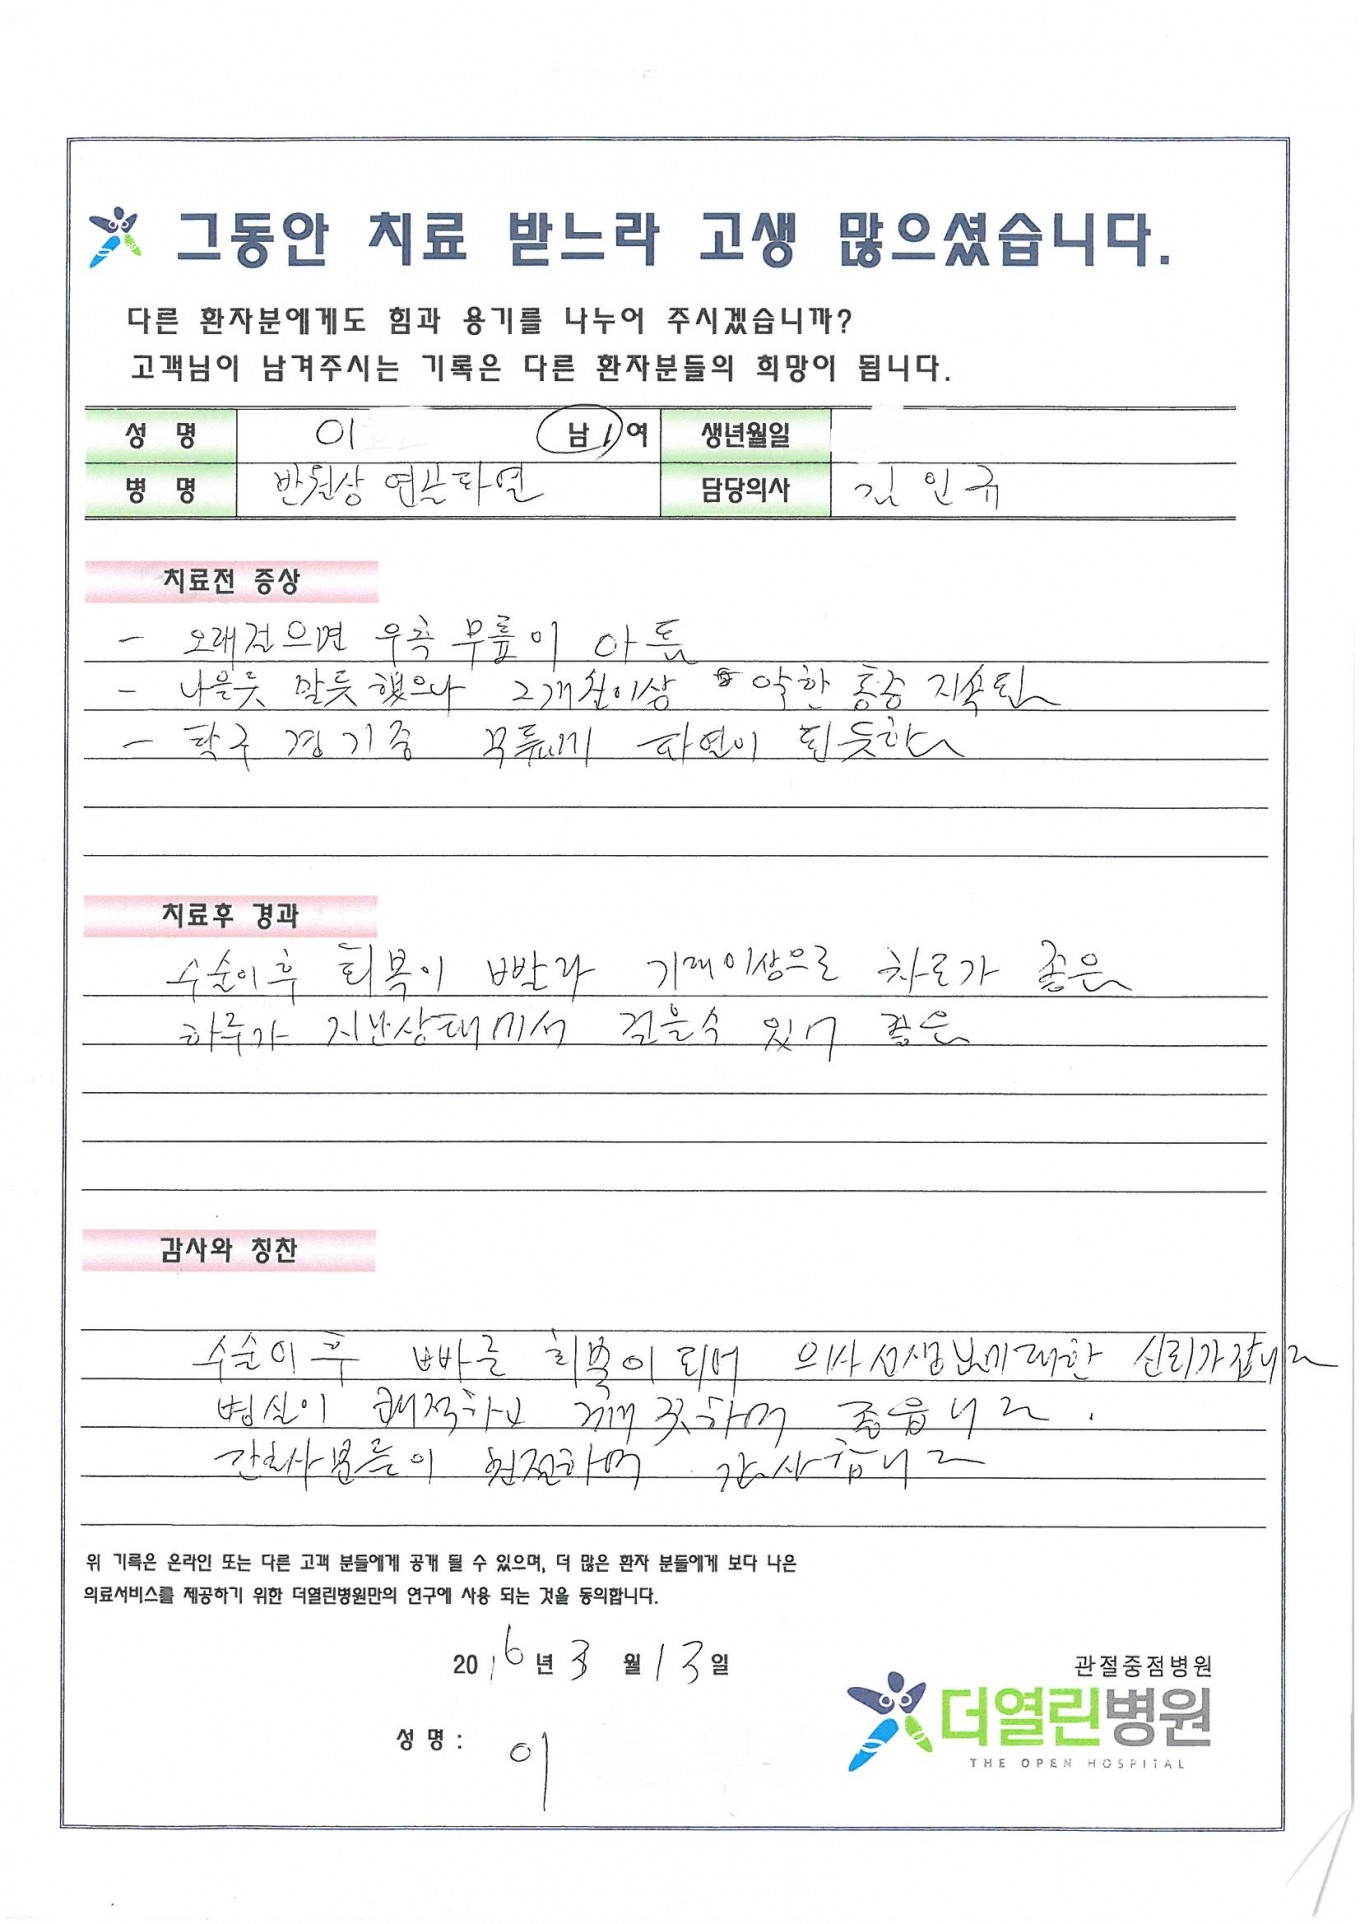 그동안 치료 받느라 고생 많으셨습니다.
다른 환자분에게도 힘과 용기를 나누어 주시겠습니까?
고객님이 남겨주시는 기록은 다른 환자분들의 희망이 됩니다.
성 명 이 남 / 여 생년월일
병 명 반월상 연골파열 담당의사 김인규
치료전 증상
- 오래걸으면 우측 무릎이 아픔
- 나을듯 말듯 했으나 2개월이상 약한 통증 지속됨
- 탁구 경기중 무릎에 파열이 된듯함
치료후 경과
수술이후 회복이 빨라 기대이상으로 차도가 좋음
하루가 지난상태에서 걸을수 있어 좋음
감사와 칭찬
수술이후 빠른 회복이 되어 의사선생님에대한 신뢰가갑니다
병실이 쾌적하고 깨끗하여 좋읍니다.
간호사분들이 친절하여 감사합니다
위 기록은 온라인 또는 다른 고객 분들에게 공개 될 수 있으며, 더 많은 환자 분들에게 보다 나은
의료서비스를 제공하기 위한 더열린병원만의 연구에 사용 되는 것을 동의합니다.
2016년 3월 13일
관절중점병원
더열린병원
THE OPEN HOSPITAL
성 명 : 이